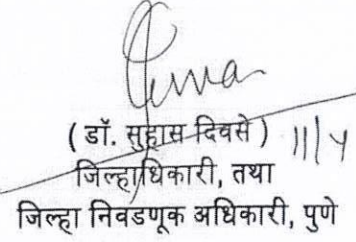 ( डॉ. सुहास दिवसे ) 11/4
जिल्हाधिकारी, तथा
जिल्हा निवडणूक अधिकारी, पुणे